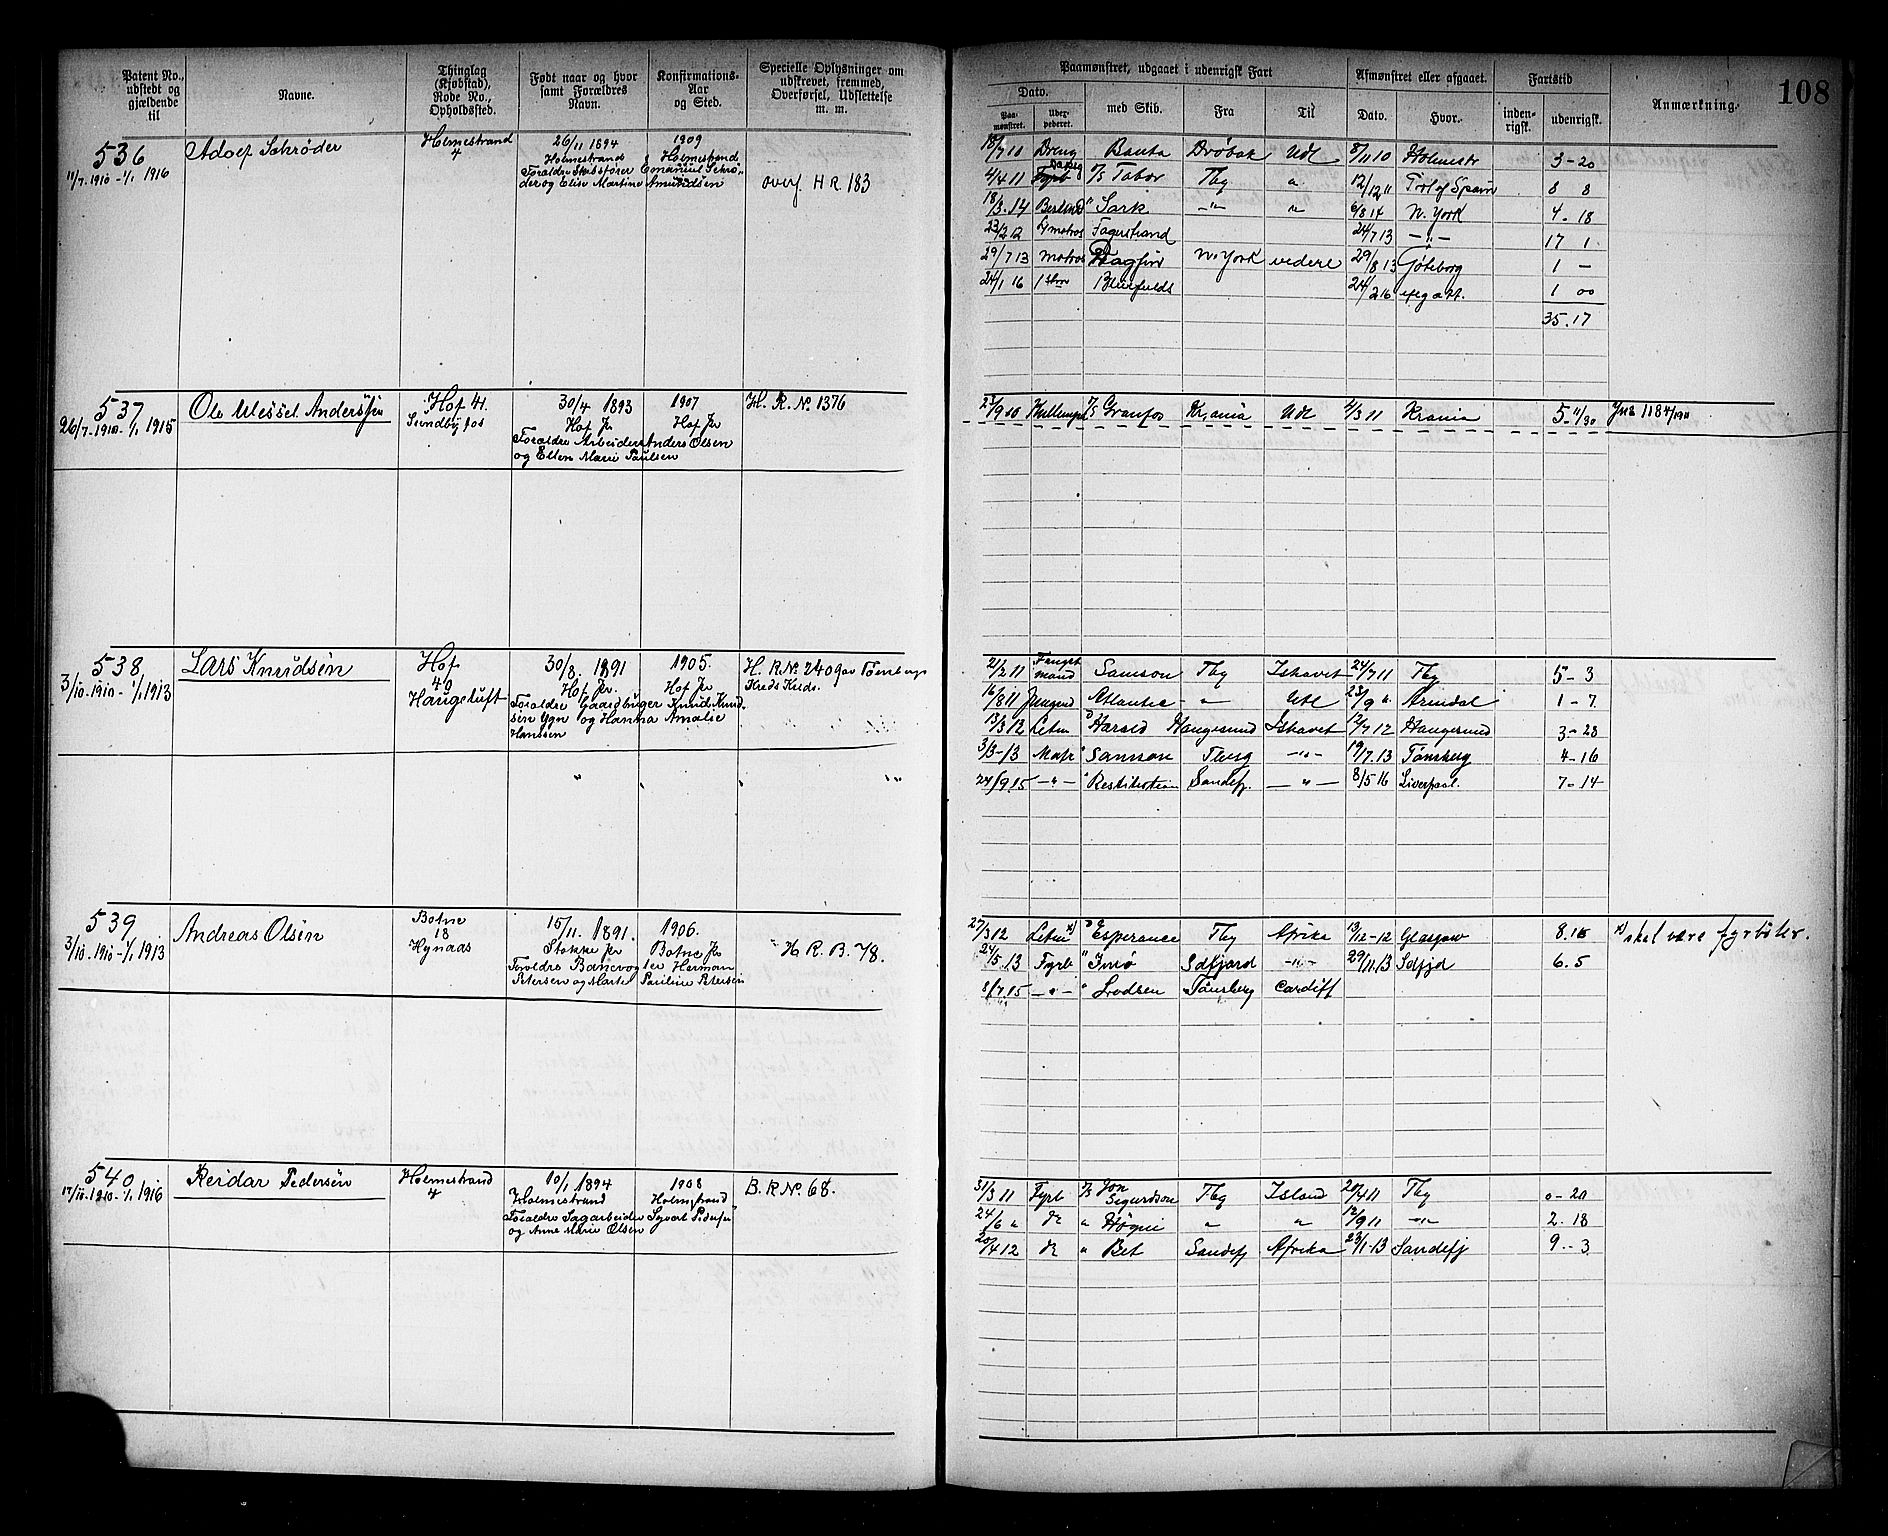 Patent No., udstedt og gjældende til
Navne.
Thinglag (Kjøbstad), Rode No., Opholdssted.
Født naar og hvor samt Forældres Navn.
Konfirmations-Aar og Sted.
Specielle Oplysninger om udskrevet, fremmed, Overførsel, Udslettelse m. m.
Paamønstret, udgaaet i udenrigsk Fart
Afmønstret eller afgaaet.
Fartstid
Anmærkning.
108
Dato.
Paa-mønstret.
med Skib.
Fra
Til
Dato.
Hvor.
inden-rigsk.
udenrigsk.
536
11/7.1910-1/1 1916
Adolf Schrøder
Holmestrand
4
26/11 1894
Holmestrand
Foraldre Skibsfører Emanuel Schrø-
der og Elise Martine Amundsen
1909
Holmestrand
overf H R 183
18/7 10 Dreng Banta Drøbak Udl 8/11 10 Holmestr 3-20
4/4 11 Fyrb D/S Tabor Tbg " 12/12 11 8 8
18/3.14 " Sark -"- " 6/8 14 N. York 4.18
23/2 12 Fagerstrand 24/7 13 -"- 17 1
29/7 13 Matros Dagfin N. York videre 29/8 13 Göteborg 1 -
24/1 16 Bluefields 24/2 16 1 00
35.17
537
26/7.1910-1/1 1915
Ole Wessel Anderssen
Hof 41
Sundbyfos
30/4 1893
Hof Js
Foraldre Arbeider Anders Olsen
og Ellen Marie Paulsen
1907
Hof Js
H. R. No. 1376
Kullemper D/S Granfos Krania Udl 4/3 11 Krania 5-11/30
538
3/10.1910-1/1 1913
Lars Knudsen
Hof
49
Haugstuft
30/8. 1891
Hof Js.
Foraldre Gaardbruger Knud Knud-
sen Ygn og Hanna Amalie
Hanssen
1905.
Hof Js
H. R. No 2409 av Tønsbergs
Kreds Kreds.
21/2 11 Samson Tbg Ishavet 24/7 11 Tbg 5-3
16/8 11 Jungmd Atlantic -"- Udl 23/9 " Arendal 1-7
13/3 12 Letm D Harald Haugesund Ishavet 12/7 12 Haugesund 3-28
3/3-13 Matr " Samson Tberg -"- 19/7.13 Tønsberg 4-16
24/9 15 -"- " Restitution Sandefj. -"- 8/5 16 Liverpool. 7-14
539
3/10.1910-1/1 1913
Andreas Olsen
Botne
18
Hynaas
15/11. 1891.
Stokke Js
Foraldre Banevogter Herman
Petersen og Marte Pauline Petersen
1906.
Botne Js
H. R. B. 78.
27/3 12 Letm x) D Esperance Tbg Afrika 13/12-12 Glasgow 8.16 x) skal være fyrbøter.
24/5.13 Fyrb " Imø Sdfjord -"- 29/11.13 Sdfjd 6.5
8/7 15 -"- " Tønsberg Cardiff
540
17/10.1910-1/1 1916
Reidar Pedersen
Holmestrand
4
10/1 1894
Holmestrand
Foraldre Sagarbeider Syvert Pedersen
og Anne Marie Olsen
1908
Holmestrand
B. R No. 68.
31/3 11 Fyrb D/S Jon Sigurdson Tbg Island 20/4 11 Tbg 0-20
24/6 " do " Høgni " " 12/9 11 -"- 2.18
20/4 12 do " Bet Sandefj Afrika 23/1-13 Sandefj 9.-3